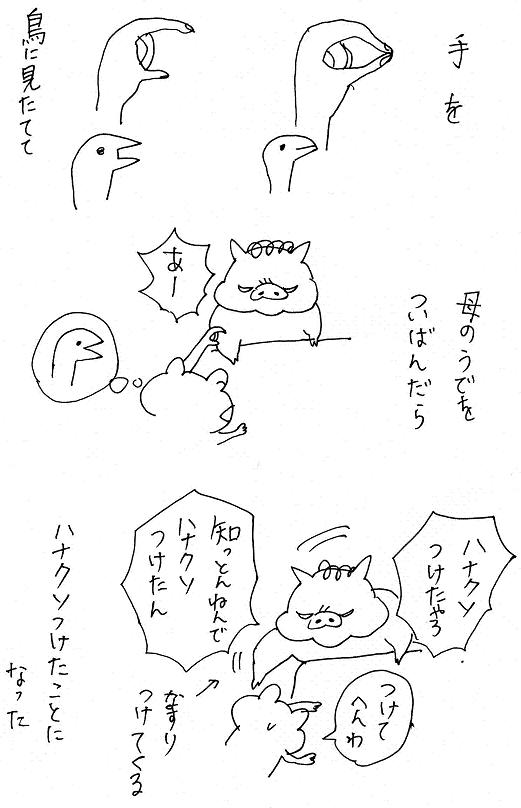 手を
鳥に見たてて
母のうでを
ついばんだら
あー
ハナクソ
つけたやろ
つけて
へんわ
知っとんねんで
ハナクソ
つけたん
なすり
つけてくる
ハナクソつけたことに
なった